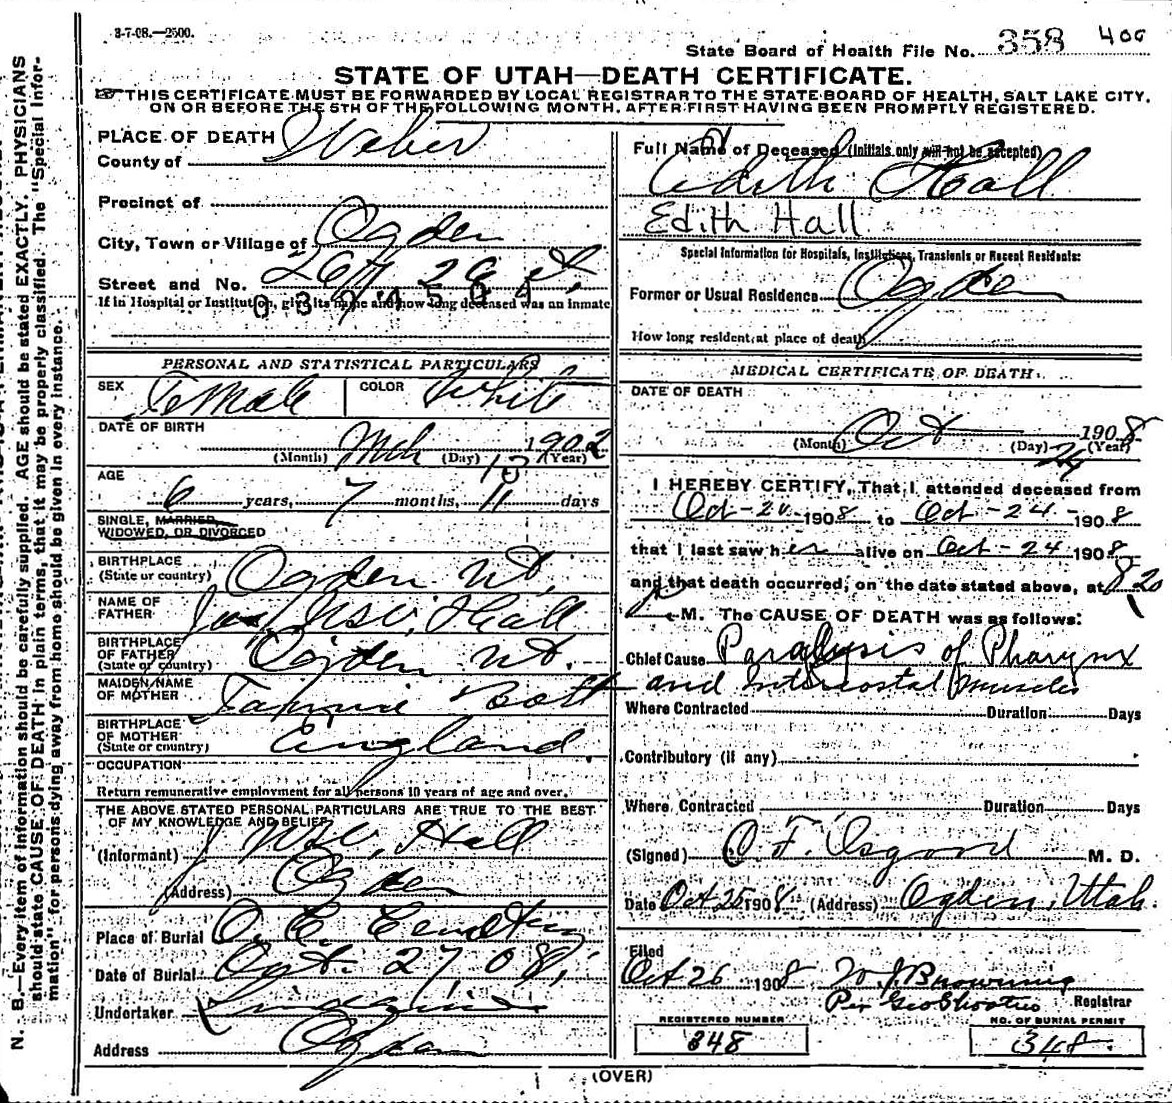 3-7-08.—2500.
State Board of Health File No. 358 400
STATE OF UTAH—DEATH CERTIFICATE.
THIS CERTIFICATE MUST BE FORWARDED BY LOCAL REGISTRAR TO THE STATE BOARD OF HEALTH, SALT LAKE CITY,
ON OR BEFORE THE 5TH OF THE FOLLOWING MONTH, AFTER FIRST HAVING BEEN PROMPTLY REGISTERED.
N. B.—Every item of information should be carefully supplied. AGE should be stated EXACTLY. PHYSICIANS
should state CAUSE OF DEATH in plain terms, that it may be properly classified. The "Special Infor-
mation" for persons dying away from home should be given in every instance.
PLACE OF DEATH
County of Weber
Precinct of
City, Town or Village of Ogden
Street and No. 267 26 st.
If in Hospital or Institution, give its name and how long deceased was an inmate
PERSONAL AND STATISTICAL PARTICULARS
SEX Female COLOR White
DATE OF BIRTH
(Month) Mch (Day) 13 (Year) 1902
AGE
6 years, 7 months, 11 days
SINGLE, MARRIED,
WIDOWED, OR DIVORCED
BIRTHPLACE
(State or country) Ogden Ut.
NAME OF
FATHER Hall
BIRTHPLACE
OF FATHER
(State or country) Ogden Ut.
MAIDEN NAME
OF MOTHER
BIRTHPLACE
OF MOTHER
(State or country) England
OCCUPATION
Return remunerative employment for all persons 10 years of age and over.
THE ABOVE STATED PERSONAL PARTICULARS ARE TRUE TO THE BEST
OF MY KNOWLEDGE AND BELIEF
(Informant) Hall
(Address) Ogden
Place of Burial O. C. Cemetery
Date of Burial Oct. 27 08
Undertaker
Address Ogden
Full Name of Deceased (Initials only will not be accepted)
Edith Hall
Edith Hall
Special Information for Hospitals, Institutions, Transients or Recent Residents:
Former or Usual Residence Ogden
How long resident at place of death
MEDICAL CERTIFICATE OF DEATH.
DATE OF DEATH
(Month) Oct (Day) 24 (Year) 1908
I HEREBY CERTIFY, That I attended deceased from
Oct - 20 - 1908 to Oct - 24 - 1908
that I last saw her alive on Oct - 24 1908
and that death occurred, on the date stated above, at 8-20
M. The CAUSE OF DEATH was as follows:
Chief Cause Paralysis of Pharynx
and Intercostal Muscles
Where Contracted Duration Days
Contributory (if any)
Where Contracted Duration Days
(Signed) O. F. Osgood M. D.
Date Oct. 25 1908 (Address) Ogden, Utah.
Filed
Oct 26 1908 W. J. Browning
Per Registrar
REGISTERED NUMBER
348
NO. OF BURIAL PERMIT
348
(OVER)